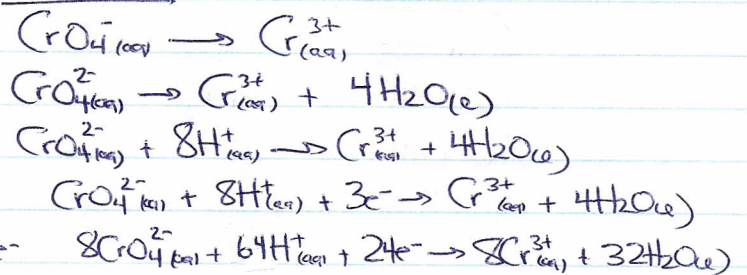 CrO₄⁻(aq) → Cr³⁺(aq)
CrO₄²⁻(aq) → Cr³⁺(aq) + 4H₂O(l)
CrO₄²⁻(aq) + 8H⁺(aq) → Cr³⁺(aq) + 4H₂O(l)
CrO₄²⁻(aq) + 8H⁺(aq) + 3e⁻ → Cr³⁺(aq) + 4H₂O(l)
e⁻ 8CrO₄²⁻(aq) + 64H⁺(aq) + 24e⁻ → 8Cr³⁺(aq) + 32H₂O(l)